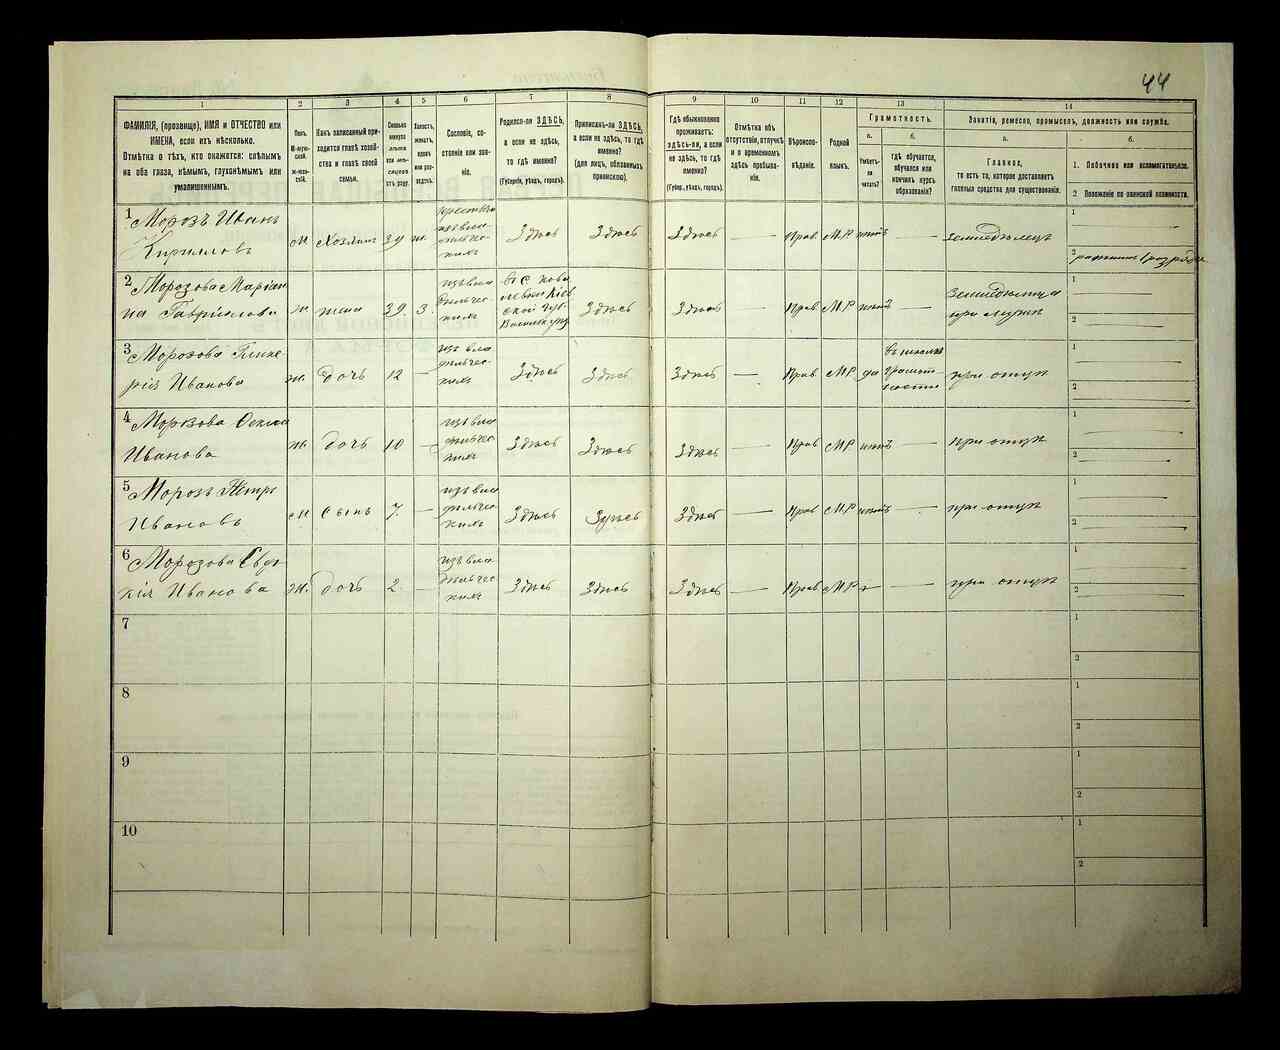 44
1 2 3 4 5 6 7 8 9 10 11 12 13 14
ФАМИЛІЯ, (прозвище), ИМЯ и ОТЧЕСТВО или
ИМЕНА, если ихъ нѣсколько.
Отмѣтка о тѣхъ, кто окажется: слѣпымъ
на оба глаза, нѣмымъ, глухонѣмымъ или
умалишеннымъ.
Полъ.
М-муж-
ской.
Ж-жен-
скій.
Какъ записанный при-
ходится главѣ хозяй-
ства и главѣ своей
семьи.
Сколько
минуло
лѣтъ
или мѣ-
сяцевъ
отъ роду.
Холостъ,
женатъ,
вдовъ
или раз-
веденъ.
Сословіе, со-
стояніе или зва-
ніе.
Родился-ли ЗДѢСЬ,
а если не здѣсь,
то гдѣ именно?
(Губернія, уѣздъ, городъ).
Приписанъ-ли ЗДѢСЬ,
а если не здѣсь, то гдѣ
именно?
(для лицъ, обязанныхъ
припискою).
Гдѣ обыкновенно
проживаетъ:
ЗДѢСЬ-ли, а если
не здѣсь, то гдѣ
именно?
(Губер., уѣздъ, городъ).
Отмѣтка объ
отсутствіи, отлучкѣ
и о временномъ
здѣсь пребыва-
ніи.
Вѣроиспо-
вѣданіе.
Родной
языкъ.
Грамотность.
а.
Умѣетъ-
ли
читать?
б.
гдѣ обучается,
обучался или
кончилъ курсъ
образованія?
Занятіе, ремесло, промыселъ, должность или служба.
а.
Главное,
то есть то, которое доставляетъ
главныя средства для существованія.
б.
1. Побочное или вспомогательное.
2 Положеніе по воинской повинности.
1 Морозъ Иванъ
Кирилловъ
м Хозяинъ 39 ж.
крестья
изъ вла
дѣльчес
кихъ
Здѣсь Здѣсь Здѣсь — Прав МР нѣтъ — земледѣлецъ
1
2 ратникъ 1 разряда
2 Морозова Маріан
на Гавриилова
ж жена 39. З.
изъ вла
дѣльчес
кихъ
Здѣсь Здѣсь — Прав МР нѣтъ —
Земледѣлица
при мужѣ
1
2
3 Морозова Глике
рія Иванова
ж. дочь 12 —
изъ вла
дѣльчес
кихъ
Здѣсь Здѣсь Здѣсь — Прав МР да
въ школѣ
грамот
ности
при отцѣ
1
2
4 Морозова
Иванова
ж. дочь 10 —
изъ вла
дѣльчес
кихъ
Здѣсь Здѣсь Здѣсь — Прав МР нѣтъ — при отцѣ
1
2
5 Морозъ Петръ
Ивановъ
м Сынъ 7. —
изъ вла
дѣльчес
кихъ
Здѣсь Здѣсь Здѣсь — Прав МР нѣтъ — при отцѣ
1
2
6 Морозова Евдо
кія Иванова
Ж. дочь 2 —
изъ вла
дѣльчес
кихъ
Здѣсь Здѣсь Здѣсь — Прав МР — — при отцѣ
1
2
7
1
2
8
1
2
9
1
2
10
1
2